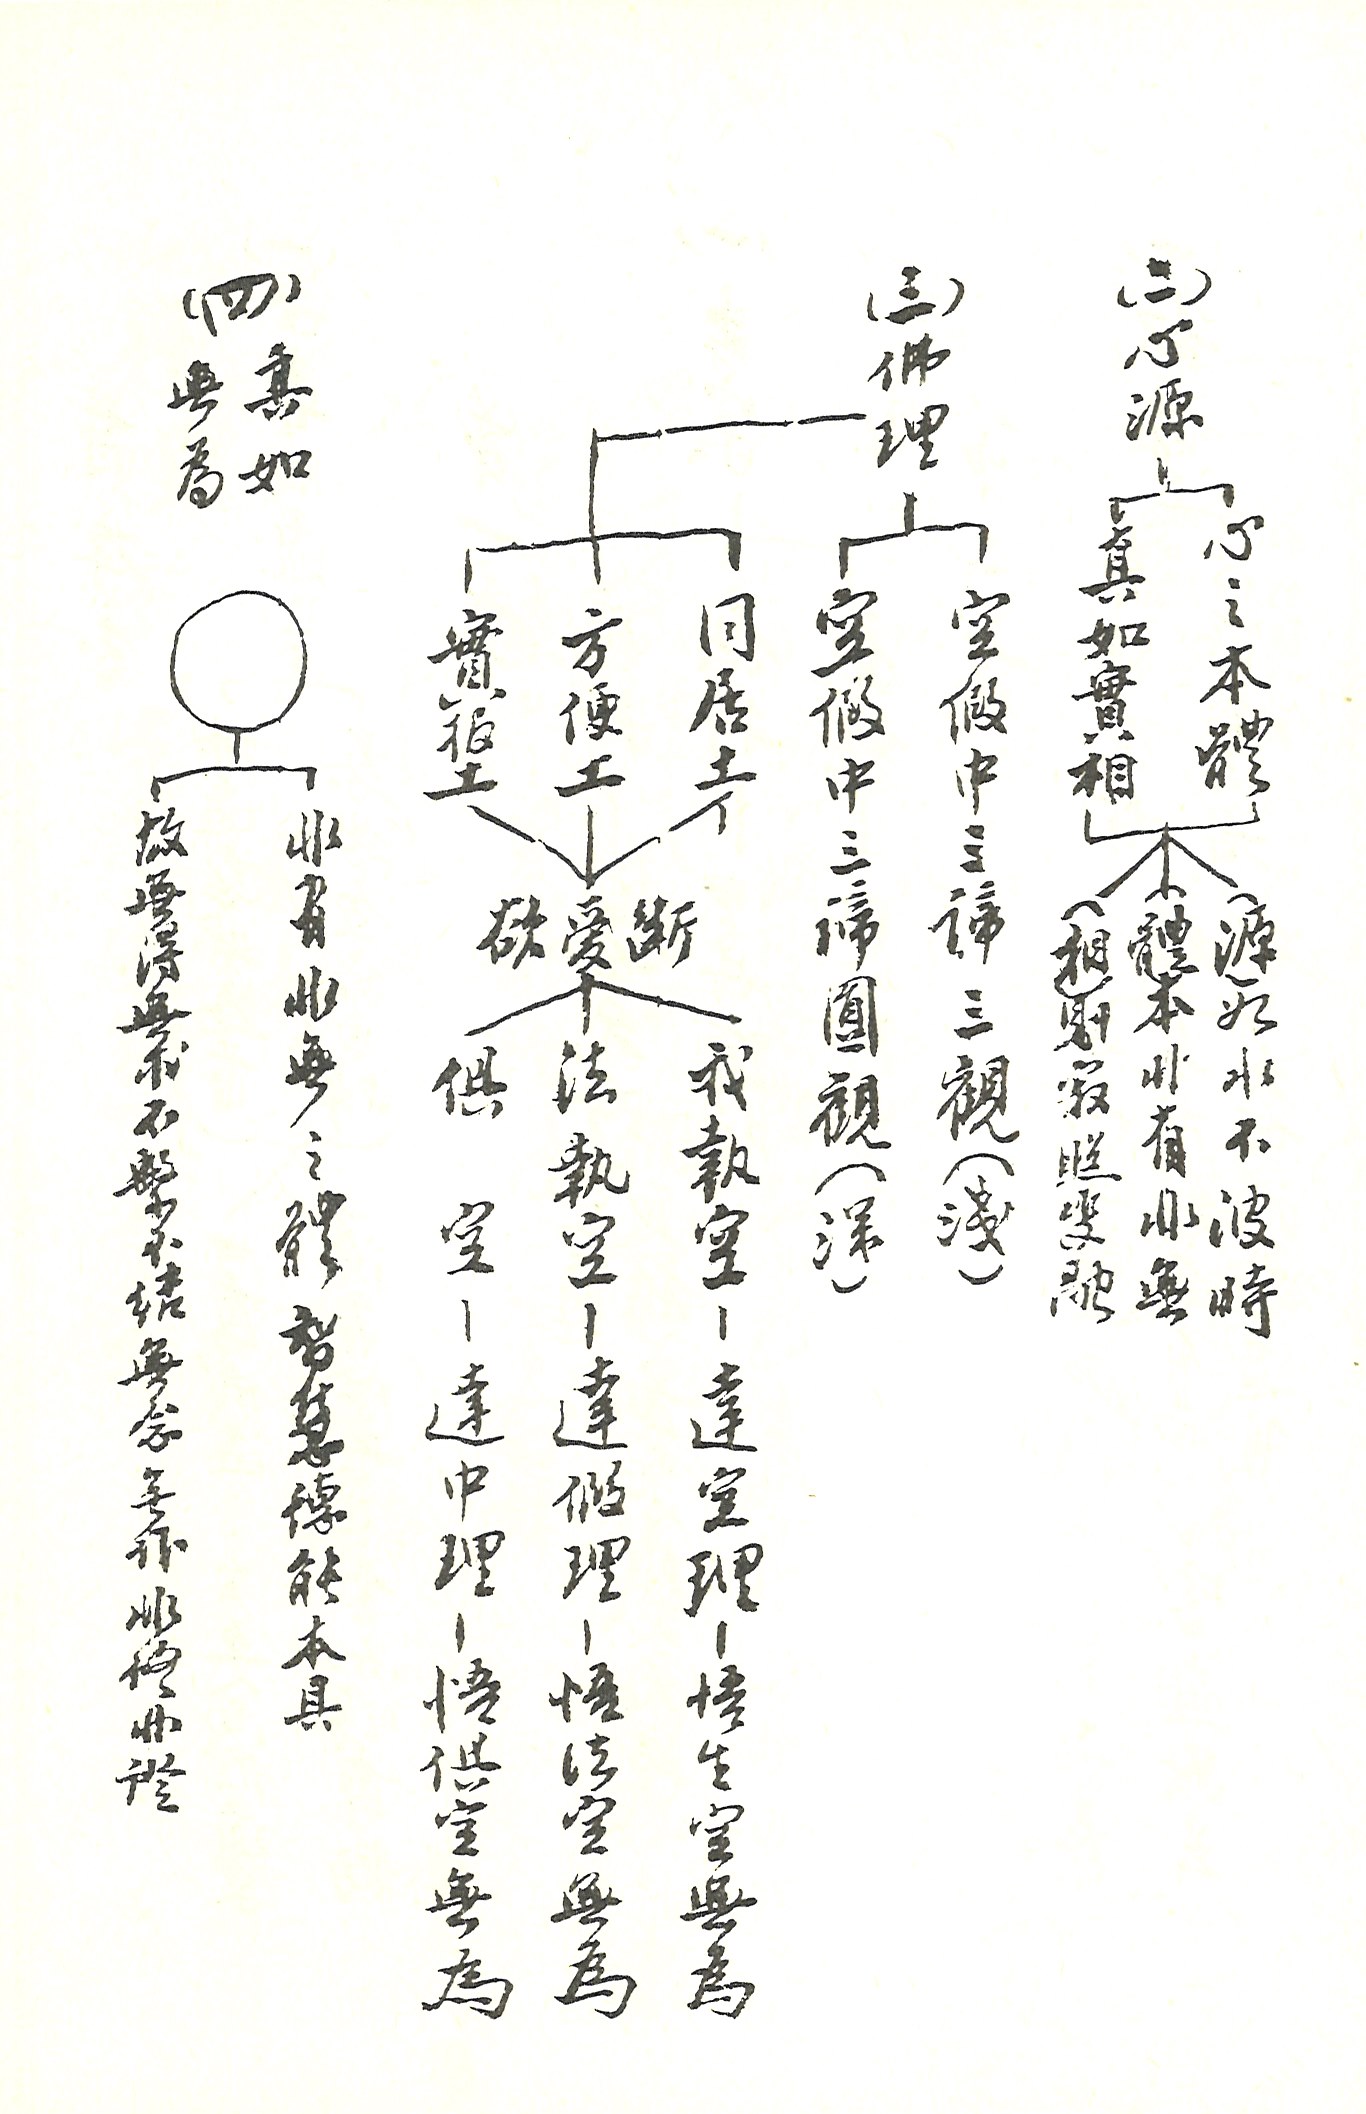 (二)心源
心之本體
真如實相
(源)如水不波時
體本非有非無
(相)則寂照雙融
(三)佛理
空假中三諦三觀(淺)
空假中三諦圓觀(深)
同居土
方便土
實報土
斷愛欲
我執空—達空理—悟生空無為
法執空—達假理—悟法空無為
俱空—達中理—悟俱空無為
(四)真如
無為
非有非無之體智慧德能本具
故無得無求不繫不結無念無作非修非證